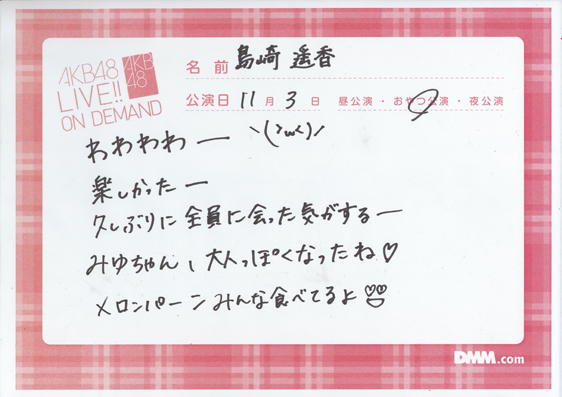 AKB48
LIVE!!
ON DEMAND
AKB
48
名前 島崎 遥香
公演日 11月 3日 昼公演・おやつ公演・夜公演
わわわわー \(>ω<)/
楽しかったー
久しぶりに全員に会った気がするー
みゆちゃん、大人っぽくなったね♡
メロンパーンみんな食べてるよ
DMM.com